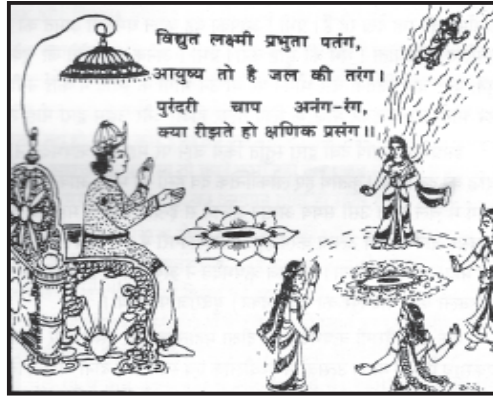 विद्युत लक्ष्मी प्रभुता पतंग,
आयुष्य तो है जल की तरंग।
पुरंदरी चाप अनंग-रंग,
क्या रीझते हो क्षणिक प्रसंग॥